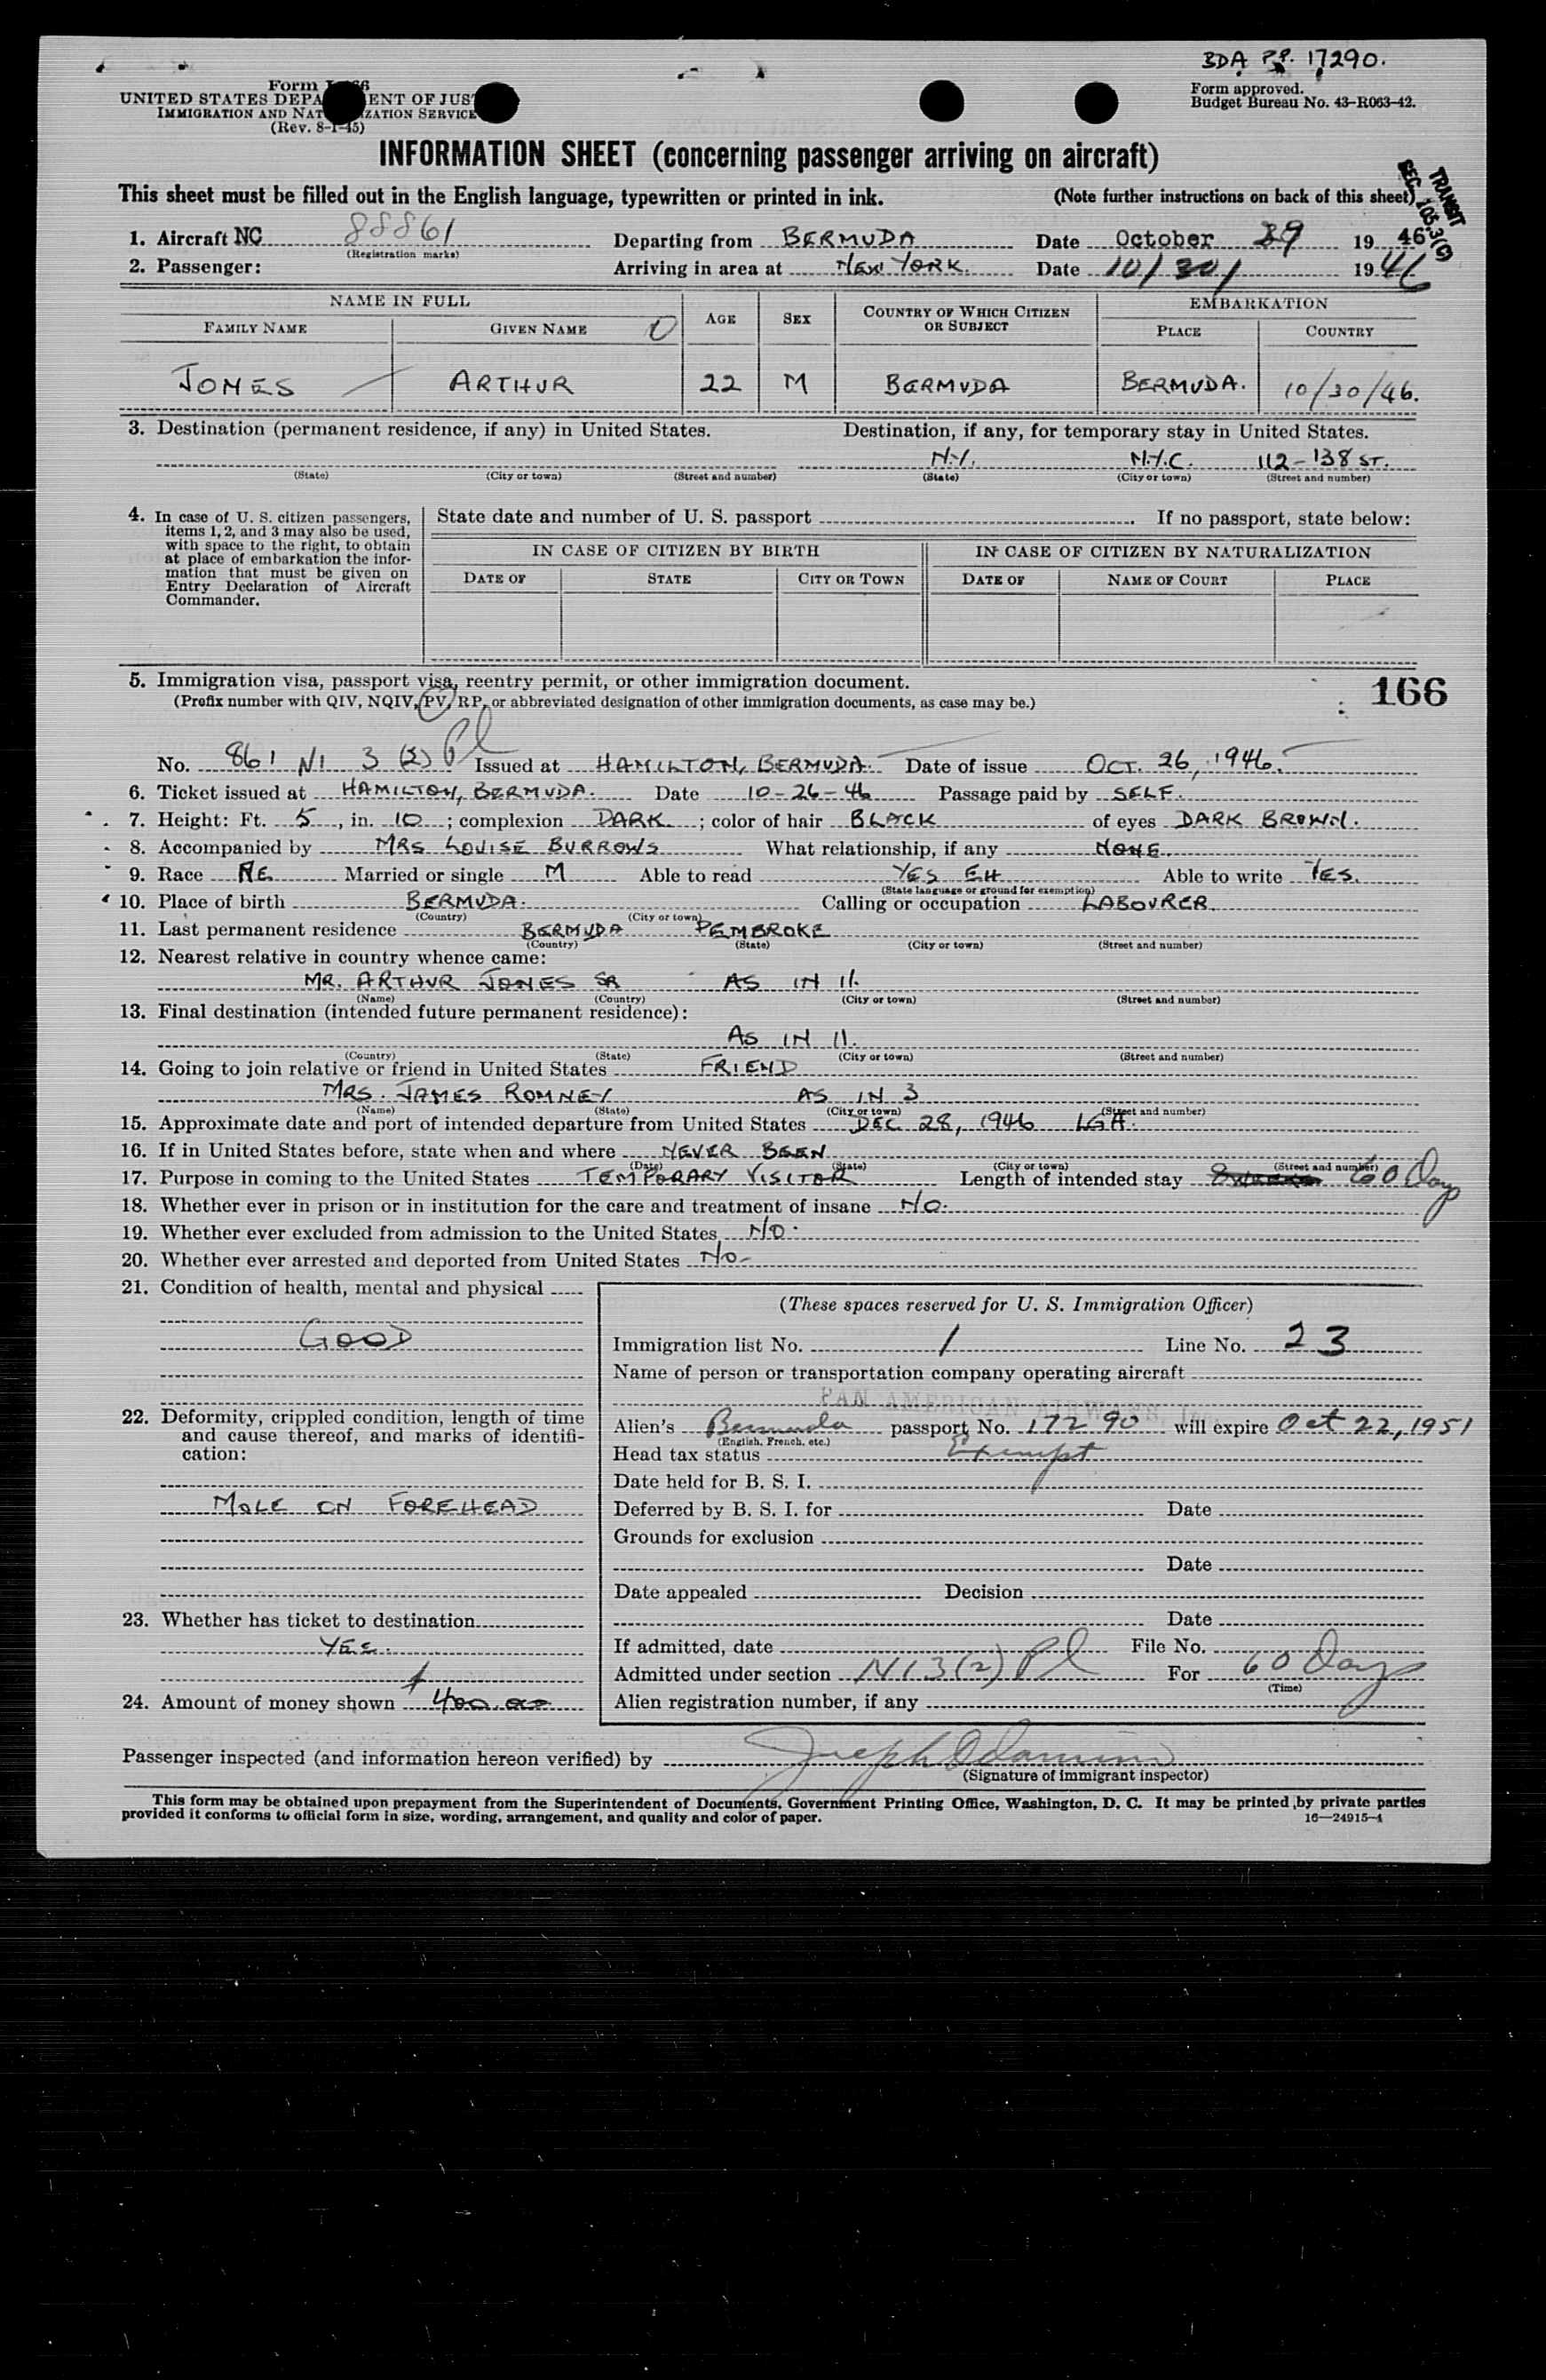 BDA P.P. 17290.
Form
UNITED STATES DEPA ENT OF JUS
IMMIGRATION AND NAT ZATION SERVICE
(Rev. 8-1-45)
Form approved.
Budget Bureau No. 43-R063-42.
INFORMATION SHEET (concerning passenger arriving on aircraft)
This sheet must be filled out in the English language, typewritten or printed in ink. (Note further instructions on back of this sheet)
TRANSIT
SEC. 105.3(C)
1. Aircraft NC 88861 Departing from BERMUDA Date October 29 1946
(Registration marks)
2. Passenger: Arriving in area at NEW YORK. Date 10/30/ 1946
NAME IN FULL AGE SEX COUNTRY OF WHICH CITIZEN OR SUBJECT EMBARKATION
FAMILY NAME GIVEN NAME PLACE COUNTRY
JONES ARTHUR 22 M BERMUDA BERMUDA. 10/30/46.
3. Destination (permanent residence, if any) in United States. Destination, if any, for temporary stay in United States.
N.Y. N.Y.C. 112-138 ST.
(State) (City or town) (Street and number) (State) (City or town) (Street and number)
4. In case of U. S. citizen passengers, items 1, 2, and 3 may also be used, with space to the right, to obtain at place of embarkation the information that must be given on Entry Declaration of Aircraft Commander.
State date and number of U. S. passport . If no passport, state below:
IN CASE OF CITIZEN BY BIRTH IN CASE OF CITIZEN BY NATURALIZATION
DATE OF STATE CITY OR TOWN DATE OF NAME OF COURT PLACE
5. Immigration visa, passport visa, reentry permit, or other immigration document.
(Prefix number with QIV, NQIV, PV, RP, or abbreviated designation of other immigration documents, as case may be.)
166
No. 861 NI 3 (2) Pl Issued at HAMILTON, BERMUDA. Date of issue OCT. 26, 1946.
6. Ticket issued at HAMILTON, BERMUDA. Date 10-26-46 Passage paid by SELF.
7. Height: Ft. 5, in. 10; complexion DARK; color of hair BLACK of eyes DARK BROWN.
8. Accompanied by MRS LOUISE BURROWS What relationship, if any NONE.
9. Race NE Married or single M Able to read YES EH Able to write YES.
(State language or ground for exemption)
10. Place of birth BERMUDA. Calling or occupation LABOURER.
(Country) (City or town)
11. Last permanent residence BERMUDA PEMBROKE
(Country) (State) (City or town) (Street and number)
12. Nearest relative in country whence came:
MR. ARTHUR JONES SR AS IN 11.
(Name) (Country) (City or town) (Street and number)
13. Final destination (intended future permanent residence):
AS IN 11.
(Country) (State) (City or town) (Street and number)
14. Going to join relative or friend in United States FRIEND
MRS. JAMES ROMNEY AS IN 3
(Name) (State) (City or town) (Street and number)
15. Approximate date and port of intended departure from United States DEC 28, 1946 LGA.
16. If in United States before, state when and where NEVER BEEN
(Date) (State) (City or town) (Street and number)
17. Purpose in coming to the United States TEMPORARY VISITOR Length of intended stay 60 Days
18. Whether ever in prison or in institution for the care and treatment of insane NO.
19. Whether ever excluded from admission to the United States NO.
20. Whether ever arrested and deported from United States NO-
21. Condition of health, mental and physical
GOOD
22. Deformity, crippled condition, length of time and cause thereof, and marks of identification:
MOLE ON FOREHEAD
23. Whether has ticket to destination
YES.
24. Amount of money shown 400.00
(These spaces reserved for U. S. Immigration Officer)
Immigration list No. 1 Line No. 23
Name of person or transportation company operating aircraft
PAN AMERICAN AIRWAYS, INC.
Alien's Bermuda passport No. 17290 will expire Oct 22, 1951
(English, French, etc.)
Head tax status Exempt
Date held for B. S. I.
Deferred by B. S. I. for Date
Grounds for exclusion
Date
Date appealed Decision
Date
If admitted, date File No.
Admitted under section NI 3(2) Pl For 60 Days
(Time)
Alien registration number, if any
Passenger inspected (and information hereon verified) by Joseph
(Signature of immigrant inspector)
This form may be obtained upon prepayment from the Superintendent of Documents, Government Printing Office, Washington, D. C. It may be printed by private parties
provided it conforms to official form in size, wording, arrangement, and quality and color of paper. 16—24915-1